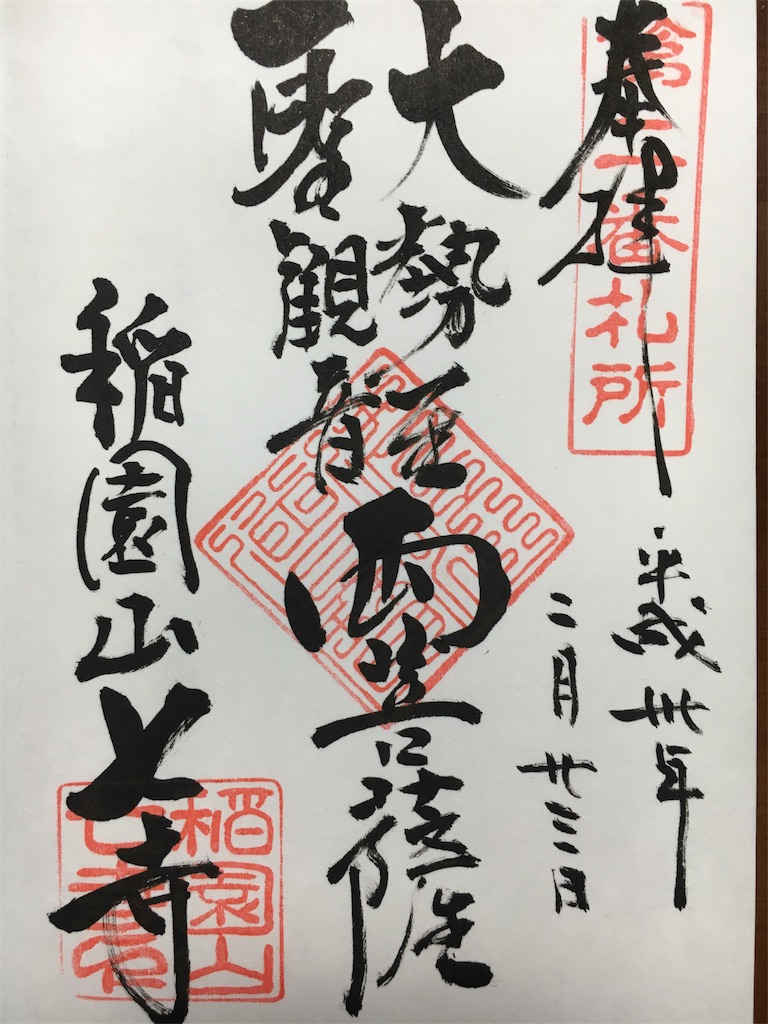 奉拝
番札所
平成卅年
二月廿三日
大勢至
聖観音
両菩薩
稲園山七寺
稲園山
七寺印